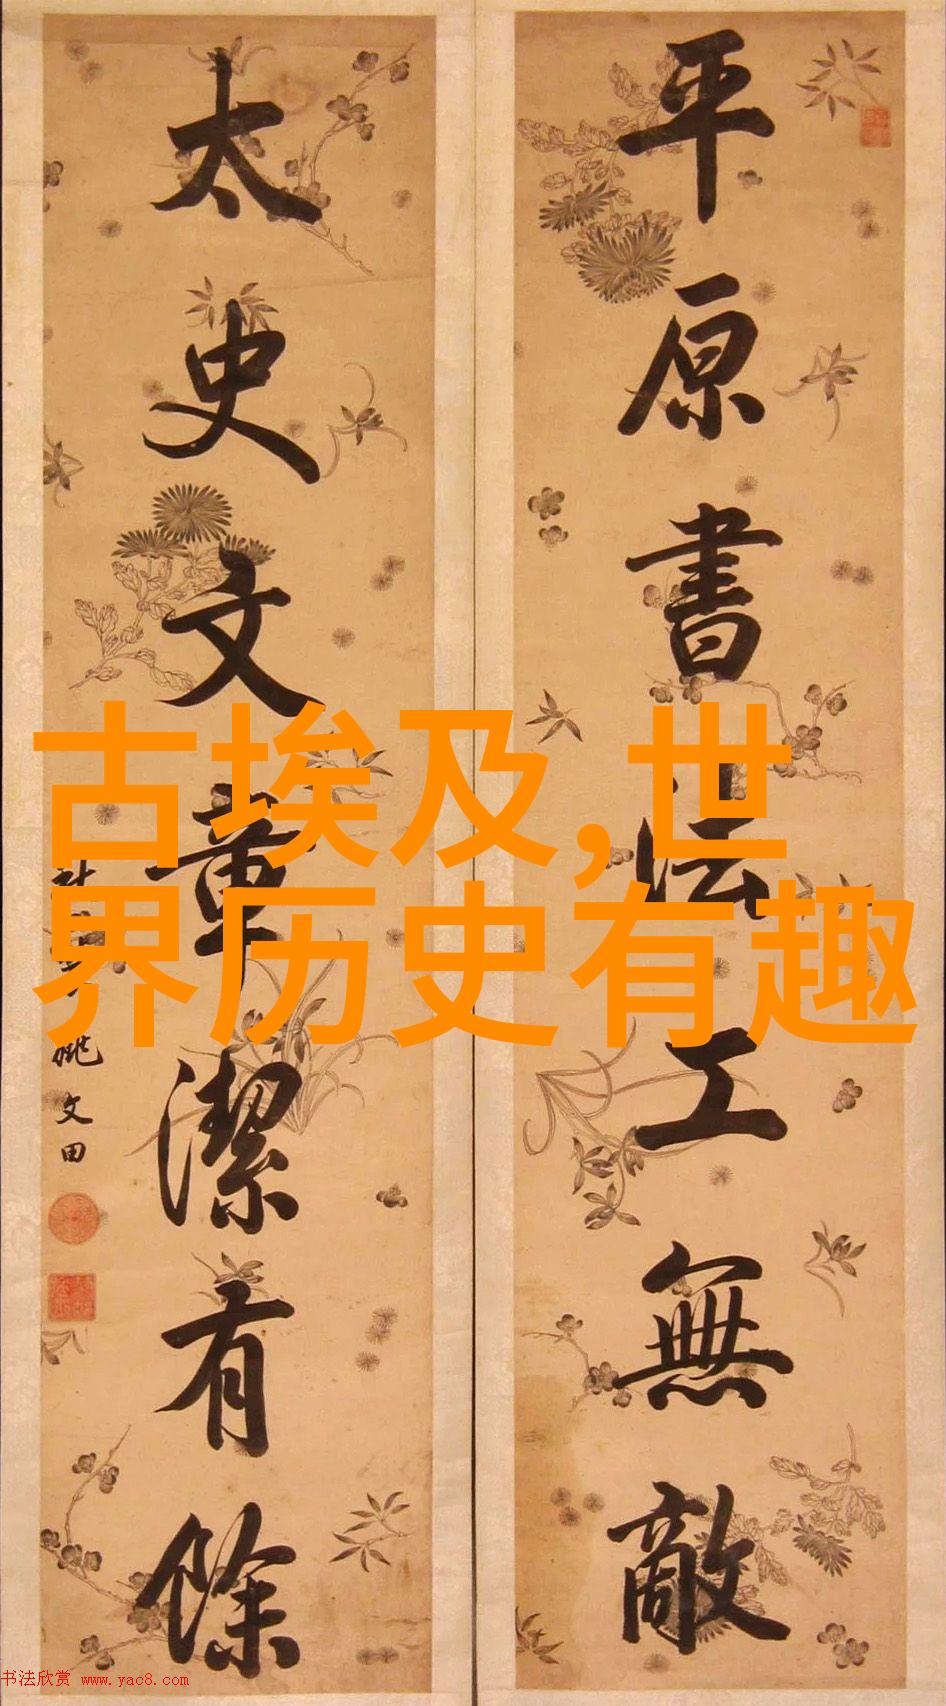 平原書法工無敵
太史文章潔有餘
姚文田
古埃及,世
界历史有趣
书法欣赏 www.yac8.com